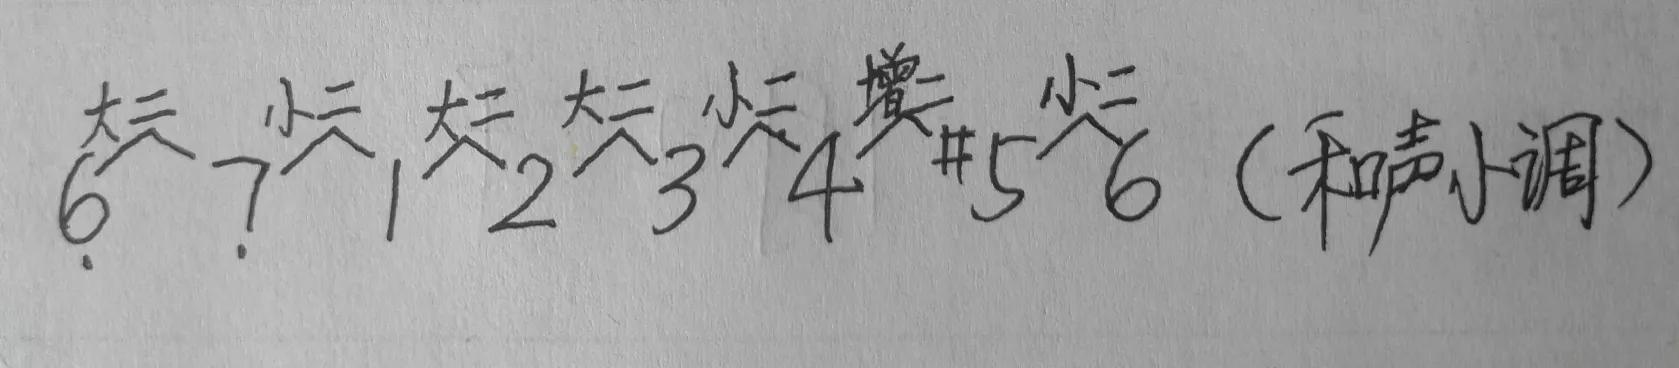 大二 小二 大二 大二 小二 增二 小二
6̣ 7̣ 1 2 3 4 #5 6 (和声小调)